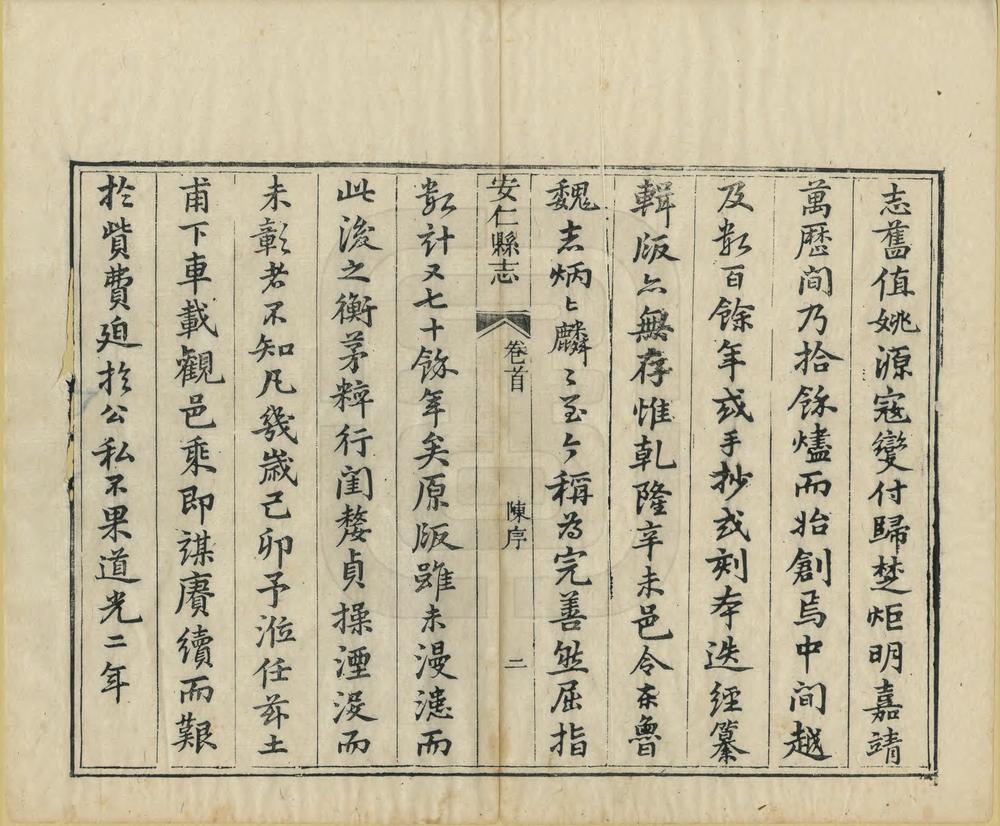 志舊值姚源寇變付歸楚炬明嘉靖
萬歷間乃拾餘燼而始創焉中間越
及數百餘年或手抄或刻本迭經纂
輯版亦無存惟乾隆辛未邑令東魯
魏志炳〻麟〻至今稱為完善然屈指
安仁縣志
卷首
陳序
二
數計又七十餘年矣原版雖未漫漶而
此後之衡茅粹行閨嫠貞操湮沒而
未彰者不知凡幾歲己卯予涖任茲土
甫下車載觀邑乘即謀賡續而艱
於貲費迫於公私不果道光二年